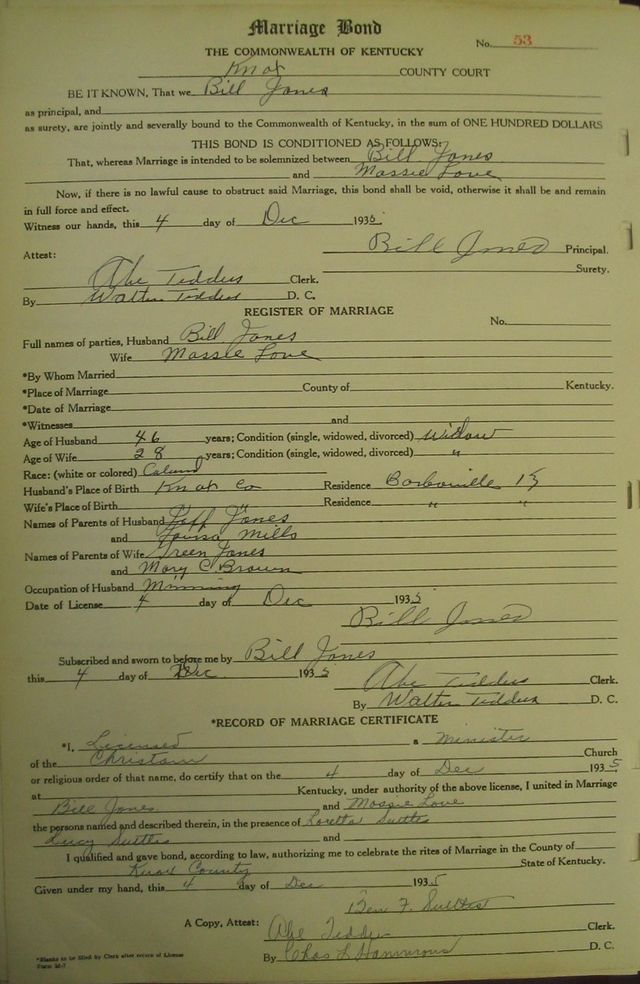 Marriage Bond
No. 53
THE COMMONWEALTH OF KENTUCKY
Knox COUNTY COURT
BE IT KNOWN, That we Bill Jones
as principal, and
as surety, are jointly and severally bound to the Commonwealth of Kentucky, in the sum of ONE HUNDRED DOLLARS
THIS BOND IS CONDITIONED AS FOLLOWS:
That, whereas Marriage is intended to be solemnized between Bill Jones
and Mossie Love
Now, if there is no lawful cause to obstruct said Marriage, this bond shall be void, otherwise it shall be and remain
in full force and effect.
Witness our hands, this 4 day of Dec 1935.
Bill Jones Principal.
Attest:
Surety.
Abe Teddus Clerk.
By Walter Teddus D. C.
REGISTER OF MARRIAGE
No.
Full names of parties, Husband Bill Jones
Wife Mossie Love
*By Whom Married
*Place of Marriage County of Kentucky.
*Date of Marriage
*Witnesses and
Age of Husband 46 years; Condition (single, widowed, divorced) Widow
Age of Wife 28 years; Condition (single, widowed, divorced) "
Race: (white or colored) Colored
Husband's Place of Birth Knox Co Residence Barbourville Ky
Wife's Place of Birth " Residence " "
Names of Parents of Husband Jeff Jones
and Louisa Mills
Names of Parents of Wife Green Jones
and Mary C. Brown
Occupation of Husband Minning
Date of License 4 day of Dec 1935
Bill Jones
Subscribed and sworn to before me by Bill Jones
this 4 day of Dec 1935
Abe Teddus Clerk.
By Walter Teddus D. C.
*RECORD OF MARRIAGE CERTIFICATE
*I, Licensed a Minister
of the Christain Church
or religious order of that name, do certify that on the 4 day of Dec 1935
at Kentucky, under authority of the above license, I united in Marriage
Bill Jones and Mossie Love
the persons named and described therein, in the presence of Loretta Suttles
Lucy Suttles and
I qualified and gave bond, according to law, authorizing me to celebrate the rites of Marriage in the County of
Knox County State of Kentucky.
Given under my hand, this 4 day of Dec 1935
Ben F. Suttles
A Copy, Attest: Abe Teddus Clerk.
By Chas L Hammons D. C.
*Blanks to be filled by Clerk after record of License
Form M-7